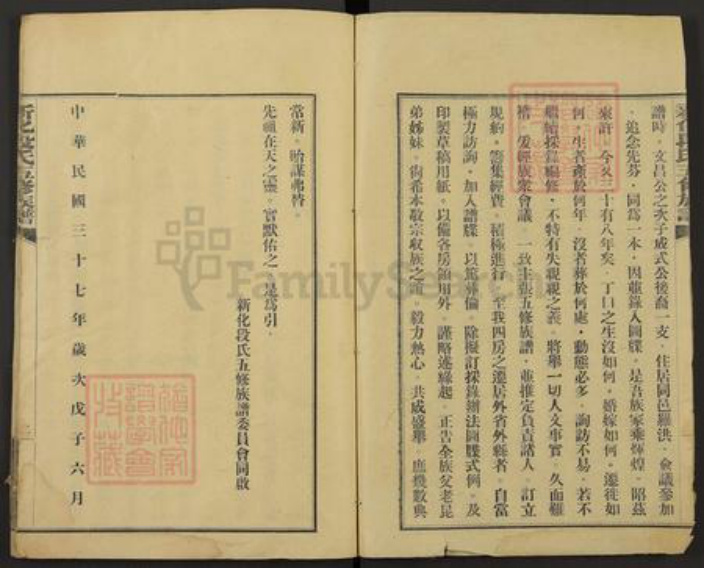 譜時。文昌公之次子成式公後裔一支。住居同邑羅洪。僉議參加
。追念先芬。同爲一本。因並錄入圖牒。是吾族家乘輝煌。昭茲
來許。今久三十有八年矣。丁口之生沒如何。婚嫁如何。遷徙如
何。生者產於何年。沒者葬於何處。動態必多。詢訪不易。若不
繼續採錄編修。不特有失親親之義。將舉一切人文事實。久而難
稽。爰經族眾會議。一致主張五修族譜。並推定負責諸人。訂立
規約。籌集經費。積極進行。至我四房之遷居外省外縣者。自當
極力訪詢。加入譜牒。以篤彝倫。除擬訂採錄辦法圖牒式例。及
印製草稿用紙。以備各房領用外。謹略述緣起。正告全族父老昆
弟姊妹。尙希本敬宗収族之道。毅力熱心。共成盛舉。庶幾數典
常新。貽謀弗替。
先祖在天之靈。實默佑之。是爲引。
新化段氏五修族譜委員會同啟
中華民國三十七年歲次戊子六月
新化段氏五修族譜
FamilySearch